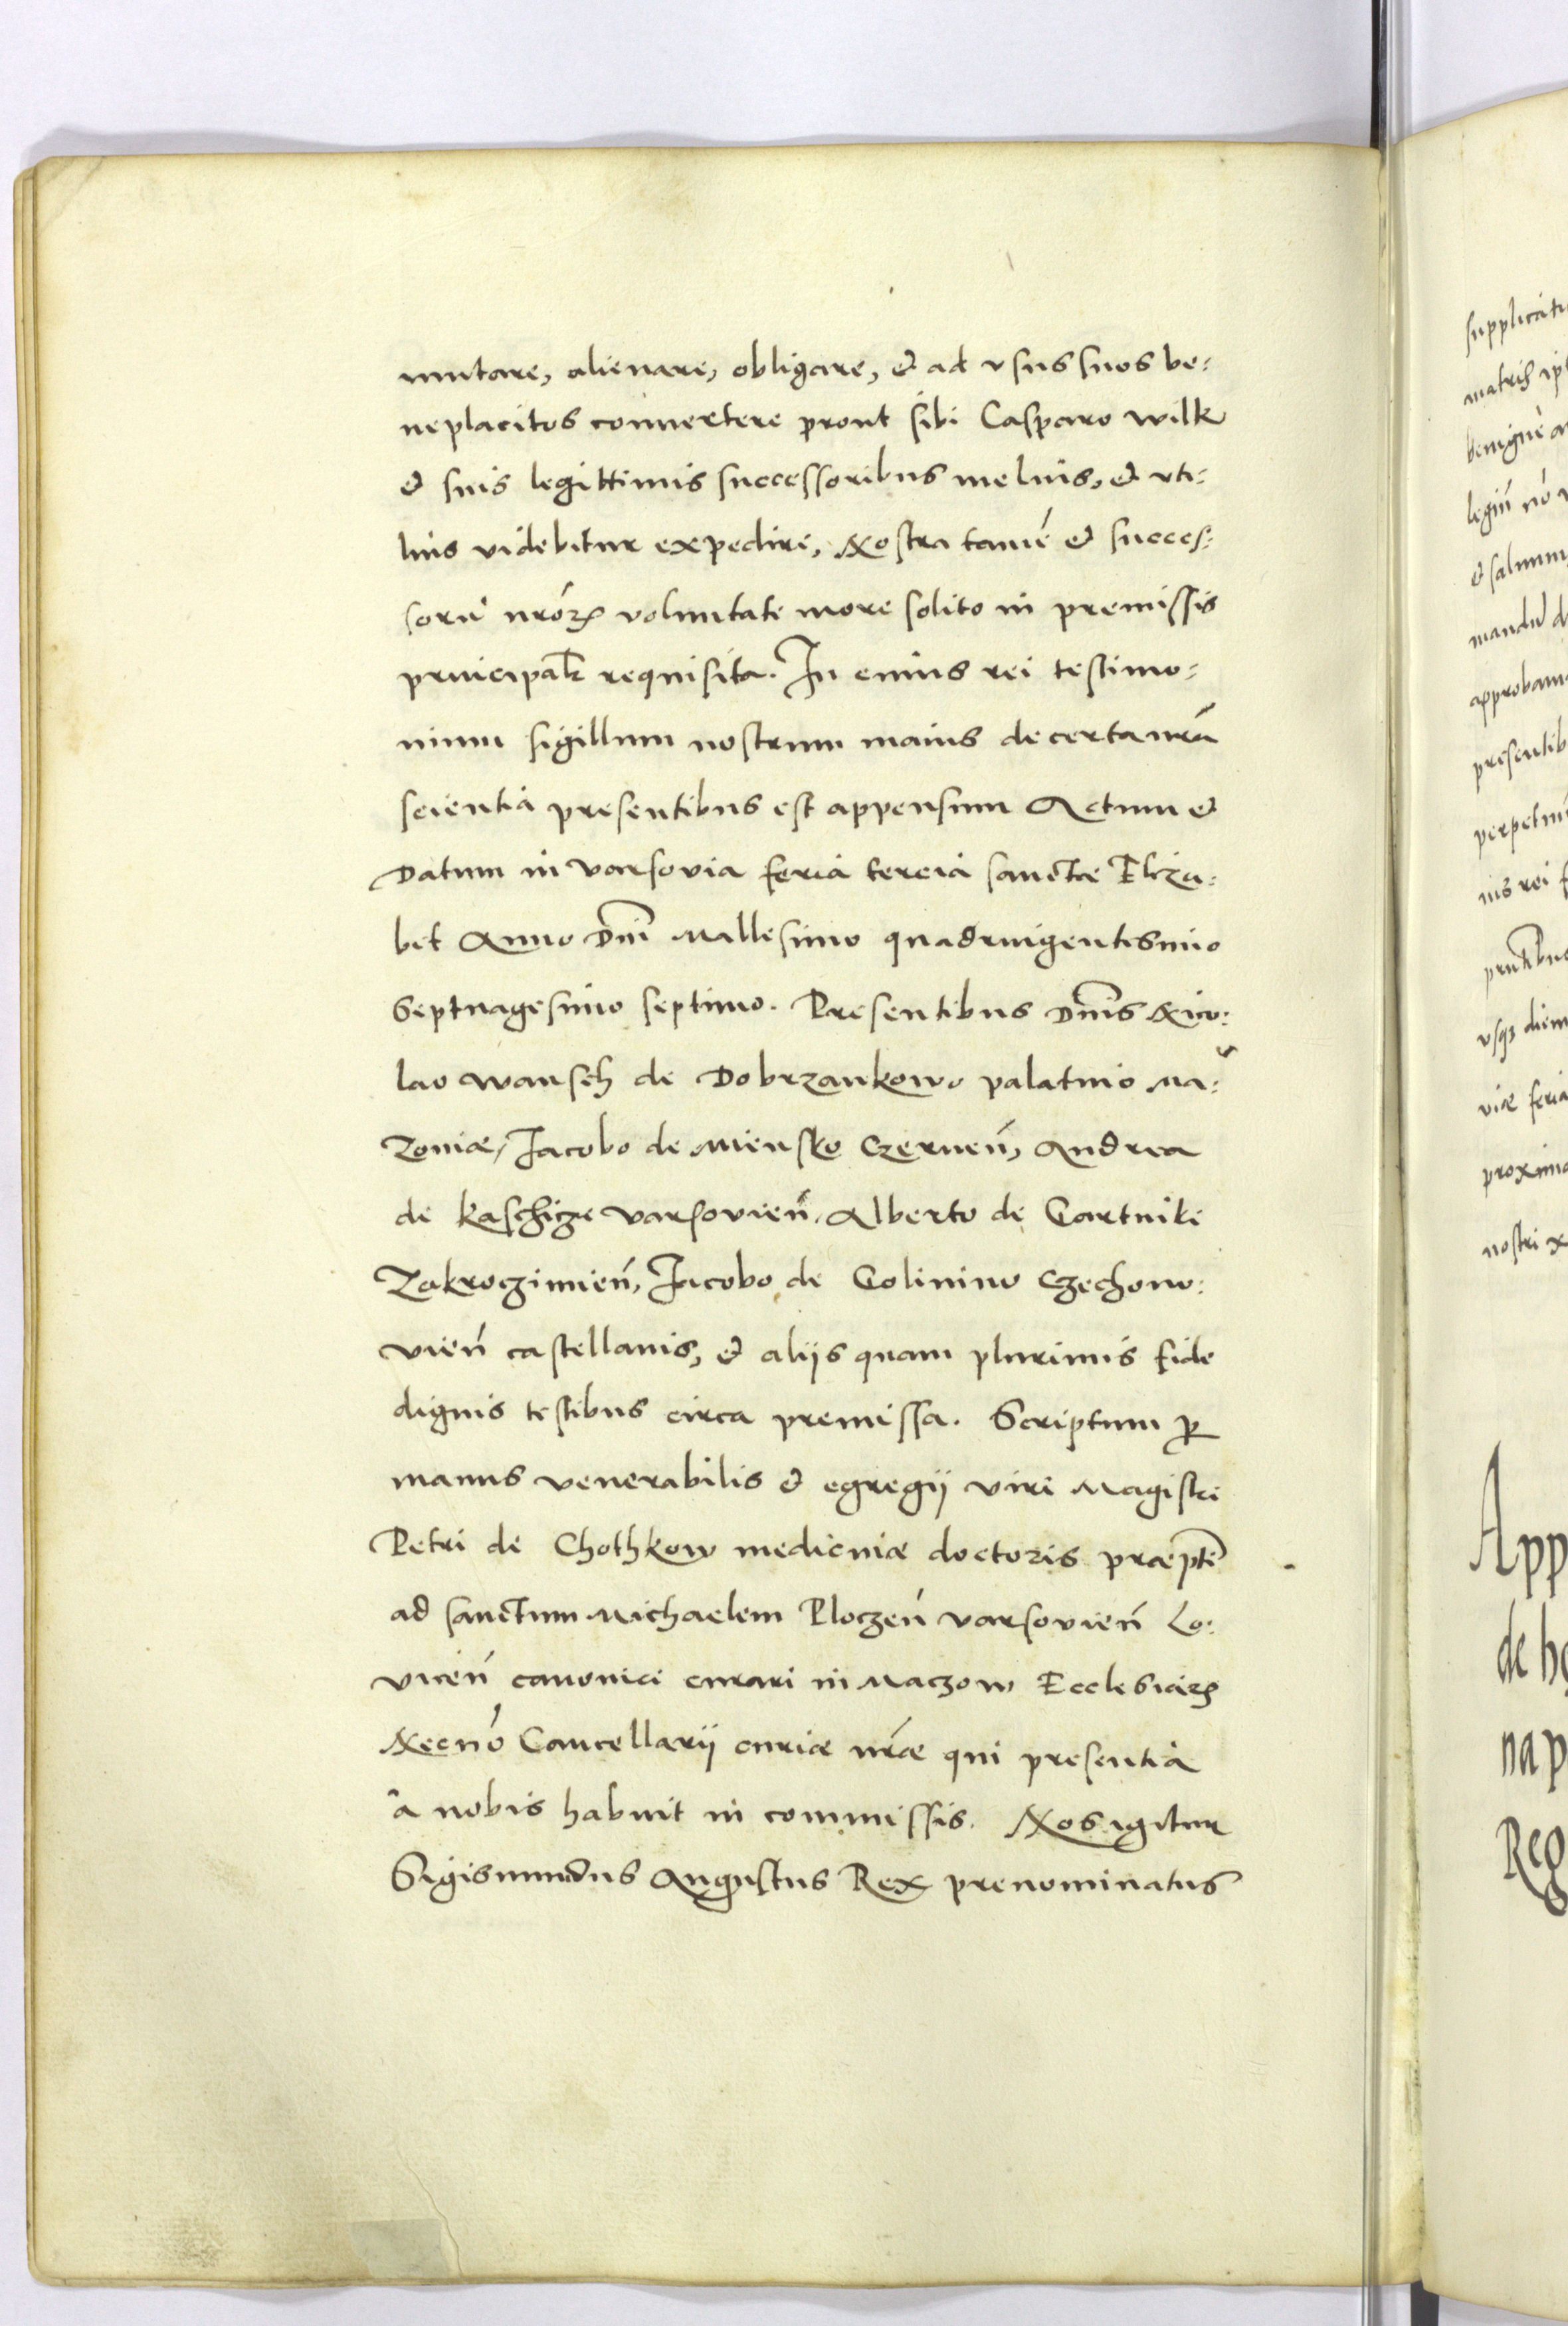 mutare, alienare, obligare, et ad vsus suos be:
neplacitos conuertere prout sibi Casparo wilk
et suis legittimis successoribus melius, et vti:
lius videbitur expedire, Nostra tamē et succes:
sorū nrōrꝝ voluntate more solito in premissis
requisita. In cuius rei testimo:
nium sigillum nostrum maius de certa nrā
scientia presentibus est appensum Actum et
Datum in varsovia feria tercia sanctæ Eliza:
bet Anno Dnī Millesimo quadringentesimo
Septuagesimo septimo. Presentibus Dnīs Nico:
lao wansch de Dobrzankowo palatino Ma:
zoviæ, Jacobo de Miensko Czerneñ, Andrea
de Kaschicze varsovieñ, Alberto de Gartniki
Zakroczimieñ, Jacobo de Golinino Czechono:
vieñ castellanis, et alijs quam plurimis fide
dignis testibus circa premissa. Scriptum ꝑ
manus venerabilis et egregij viri Magistri
Petri de Chothkow medicinæ doctoris
ad sanctum Michaelem Ploczeñ varsovieñ Lo:
viceñ canonici curati in Maczow Ecclesiarꝝ
Necnō Cancellarij curiæ nrǽ qui presentia
a nobis habuit in commissis. Nos igitur
Sigismundus Augustus Rex prenominatus
supplicati
matris
benigne
legiñ nō
et saluum
mandū d
approbam
presentib
perpetui
ius rei f
vsqꝫ diem
viæ feria
proxima
nostri
App
de ho
na p
Reg